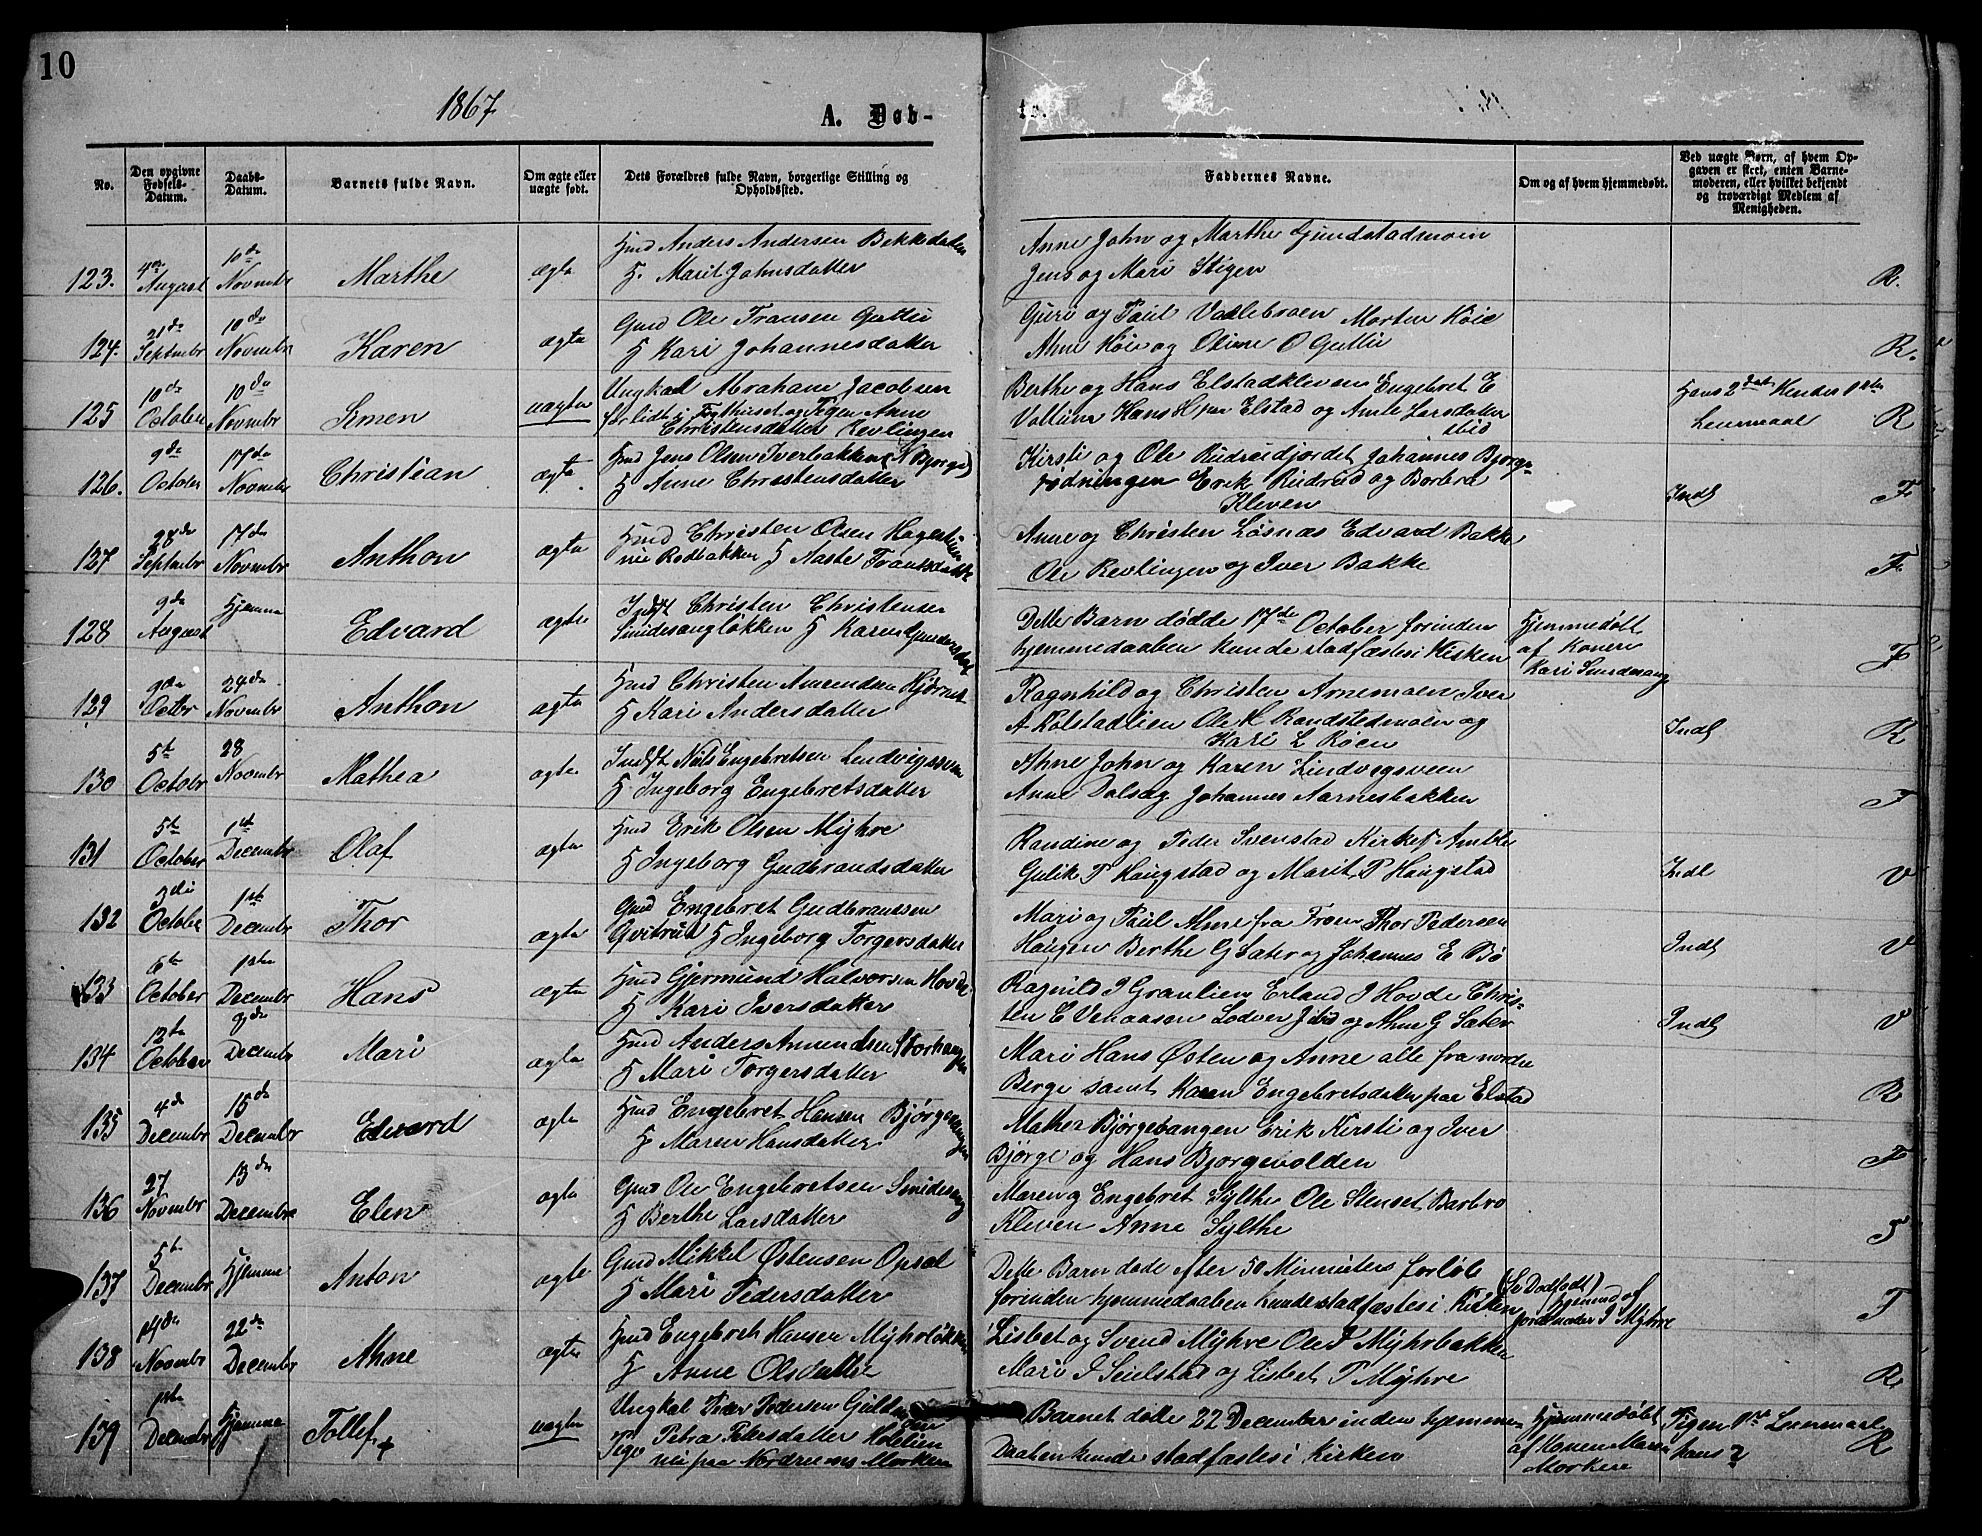 10
1867
A. Døb-
te.
No.
Den opgivne Fødsels-Datum.
Daabs-Datum.
Barnets fulde Navn.
Om ægte eller uægte født.
Dets Forældres fulde Navn, borgerlige Stilling og Opholdssted.
Faddernes Navne.
Om og af hvem hjemmedøbt.
Ved uægte Børn, af hvem Op-
gaven er skeet, enten Barne-
moderen, eller hvilket bekjendt
og troværdigt Medlem af
Menigheden.
123. 4de August 10de Novembr Marthe ægte
Hmd Anders Andersen Bekkedalen
H. Marit Johnsdatter
Anne John og Marthe
Jens og Mari Stigen
R.
124. 21de Septembr 10de Novembr Karen ægte
Gmd Ole Fransen
H Kari Johannesdatter
Guri og Paul Morten Høie
Ahne Høie og Oline O
R.
125 10de October 10de Novembr Simen uægte
Ungkarl Abraham Jacobsen
og Pigen Anne
Christensdatter Revlingen
Berthe og Hans Elstadkleven Engebret E
Hans H paa Elstad og Anne Larsdatter
ibid
Hans 2det Hendes 1ste
Leiermaal
R
126. 9de October 17de Novembr Christian ægte
Hmd Jens Olsen Iverbakken (N Bjørge)
H Anne Christensdatter
Kirsti og Ole Rudrudjordet Johannes Bjørge-
rødningen Erik Rudrud og Borbra
Kleven
Indl
F
127 28de Septembr 17de Novembr Anthon ægte
Hmd Christen Olsen
nu Rodbakken H Franssdatter
Anne og Christen Løsnæs Edvard Bakke
Ole Revlingen og Iver Bakke
F
128 9de August Hjemme Edvard ægte
Indst Christen Christensen
Smidesangløkken H Karen
Dette Barn døde 17de October forinden
hjemmedaaben kunde stadfæstes i Kirken
Hjemmedøbt
af Konen
Kari Smidesang
F
129 9de Octbr 24de Novembr Anthon ægte
Hmd Christen Amundsen
H Kari Andersdatter
Ragnhild og Christen Arnemoen Iver
A Kolstadlien Ole H Randstedmoen og
Kari L Røen
Indl
R
130 5te Octobr 28 Novembr Mathea ægte
Indst Nils Engebretsen
H Ingeborg Engebretsdatter
Ahne John og Karen Lindvigsveen
Anne Dalseg Johannes Aarnesbakken
F
131 5te October 1st Decembr Olaf ægte
Hmd Erik Olsen Myhre
H Ingeborg Gudbrandsdatter
Randine og Peder Svenstad
Gulik P Haugstad og Marit P Haugstad
Indl
V
132 3die October 1ste Decembr Thor ægte
Gmd Engebret Gudbranssen
H Ingeborg Torgersdatter
Mari og Paul Ahne fra Froen Thor Pedersen
Haugen Berthe G Sæter og Johannes E Bø
Indl
V
133 6te October 1ste Decembr Hans ægte
Hmd Gjermund Halvorsen Hovde
H Kari Iversdatter
Ragnild J Granlien Erland J Hovde Chris-
ten E ibid og Ahne G Sæter
Indl
V
134 12te October 8de Decembr Mari ægte
Hmd Anders Amundsen Storhaugen
H Mari Torgersdatter
Mari Hans Østen og Anne alle fra nordre
Berge samt Karen Engebretsdatter paa Elstad
R
135 4de Decembr 15de Decembr Edvard ægte
Hmd Engebret Hansen
H Maren Hansdatter
Mathea Bjørgebangen Erik Kirsti og Iver
Bjørge og Hans Bjørgevolden
F
136 27 Novembr 13de Decembr Elen ægte
Gmd Ole Engebretsen Smidesang
H Berthe Larsdatter
Maren og Engebret Sylthe Ole Stenset Barbro
Kleven Anne Sylthe
F
137 5te Decembr Hjemme Anton ægte
Gmd Mikkel Østensen Opsal
H Mari Pedersdatter
Dette Barn døde efter 50 Minutters forløb
forinden hjemmedaaben kunde stadfæstes i Kirken
(Se Dødfødt)
hjemmd af
Jordemoder I Myhre
F
138 14de Novembr 22de Decembr Ahne ægte
Hmd Engebret Hansen Myhrløkken
H Anne Olsdatter
Lisbet og Svend Myhre Ole P Myhrbakken
Mari J Seielstad og Lisbet P Myhre
R
139 1ste Decembr Hjemme Tollef uægte
Ungkal Iver Pedersen
Pige Petra Petersdatter Holelien
nu paa Nordre Morken
Barnet døde 22 December inden hjemme
Daaben kunde stadfæstes i kirken
Hjemmedøbt
af Konen Maren
Morken
Pigen 1ste Leiermaal
hans 2
R